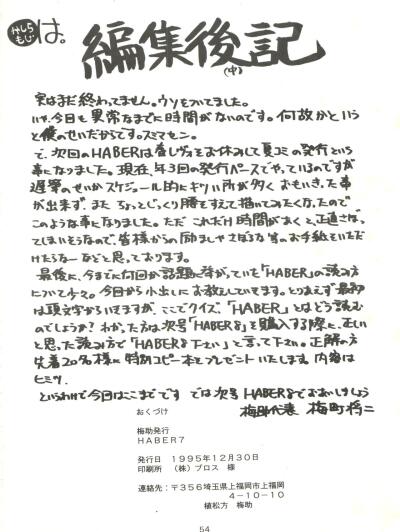 かしら
もじ
は。
編集後記
(中)
実はまだ終わってません。ウソをついてました。
いや、今日も異常なまでに時間がないのです。何故かという
と僕のせいだからです。スミマセン。
で、次回のHABERは春レヴォをお休みして夏コミの発行という
事になりました。現在、年3回の発行ペースでやっているのですが
遅筆のせいかスケジュール的にキツい所が多く、おもいきった事
が出来ず、また、ちょっとじっくり腰をすえて描いてみたくなったので
このような事になりました。ただ、これだけ時間があくと、正直さぼっ
てしまいそうなので、皆様からの励ましやさぼるな等のお手紙をいただ
けたらなーなどと思っております。
最後に、今までに何回か話題に挙がっていた「HABER」の読み方
について少々。今日から小出しにお教えしていきます。とりあえず最初
は頭文字からいきますが、ここでクイズ、「HABER」とはどう読む
のでしょうか? わかった方は次号「HABER8」を購入する際に、正しい
と思った読み方で「HABER8下さい」と言って下さい。正解の方
先着20名様に特別コピー本をプレゼントいたします。内容は
ヒミツ。
というわけで今日はここまでです では次号HABER8でおあいしましょう
梅助代表 梅町将二
おくづけ
梅助発行
HABER7
発行日 1995年12月30日
印刷所 (株)ブロス 様
連絡先:〒356埼玉県上福岡市上福岡
4-10-10
植松方 梅助
54